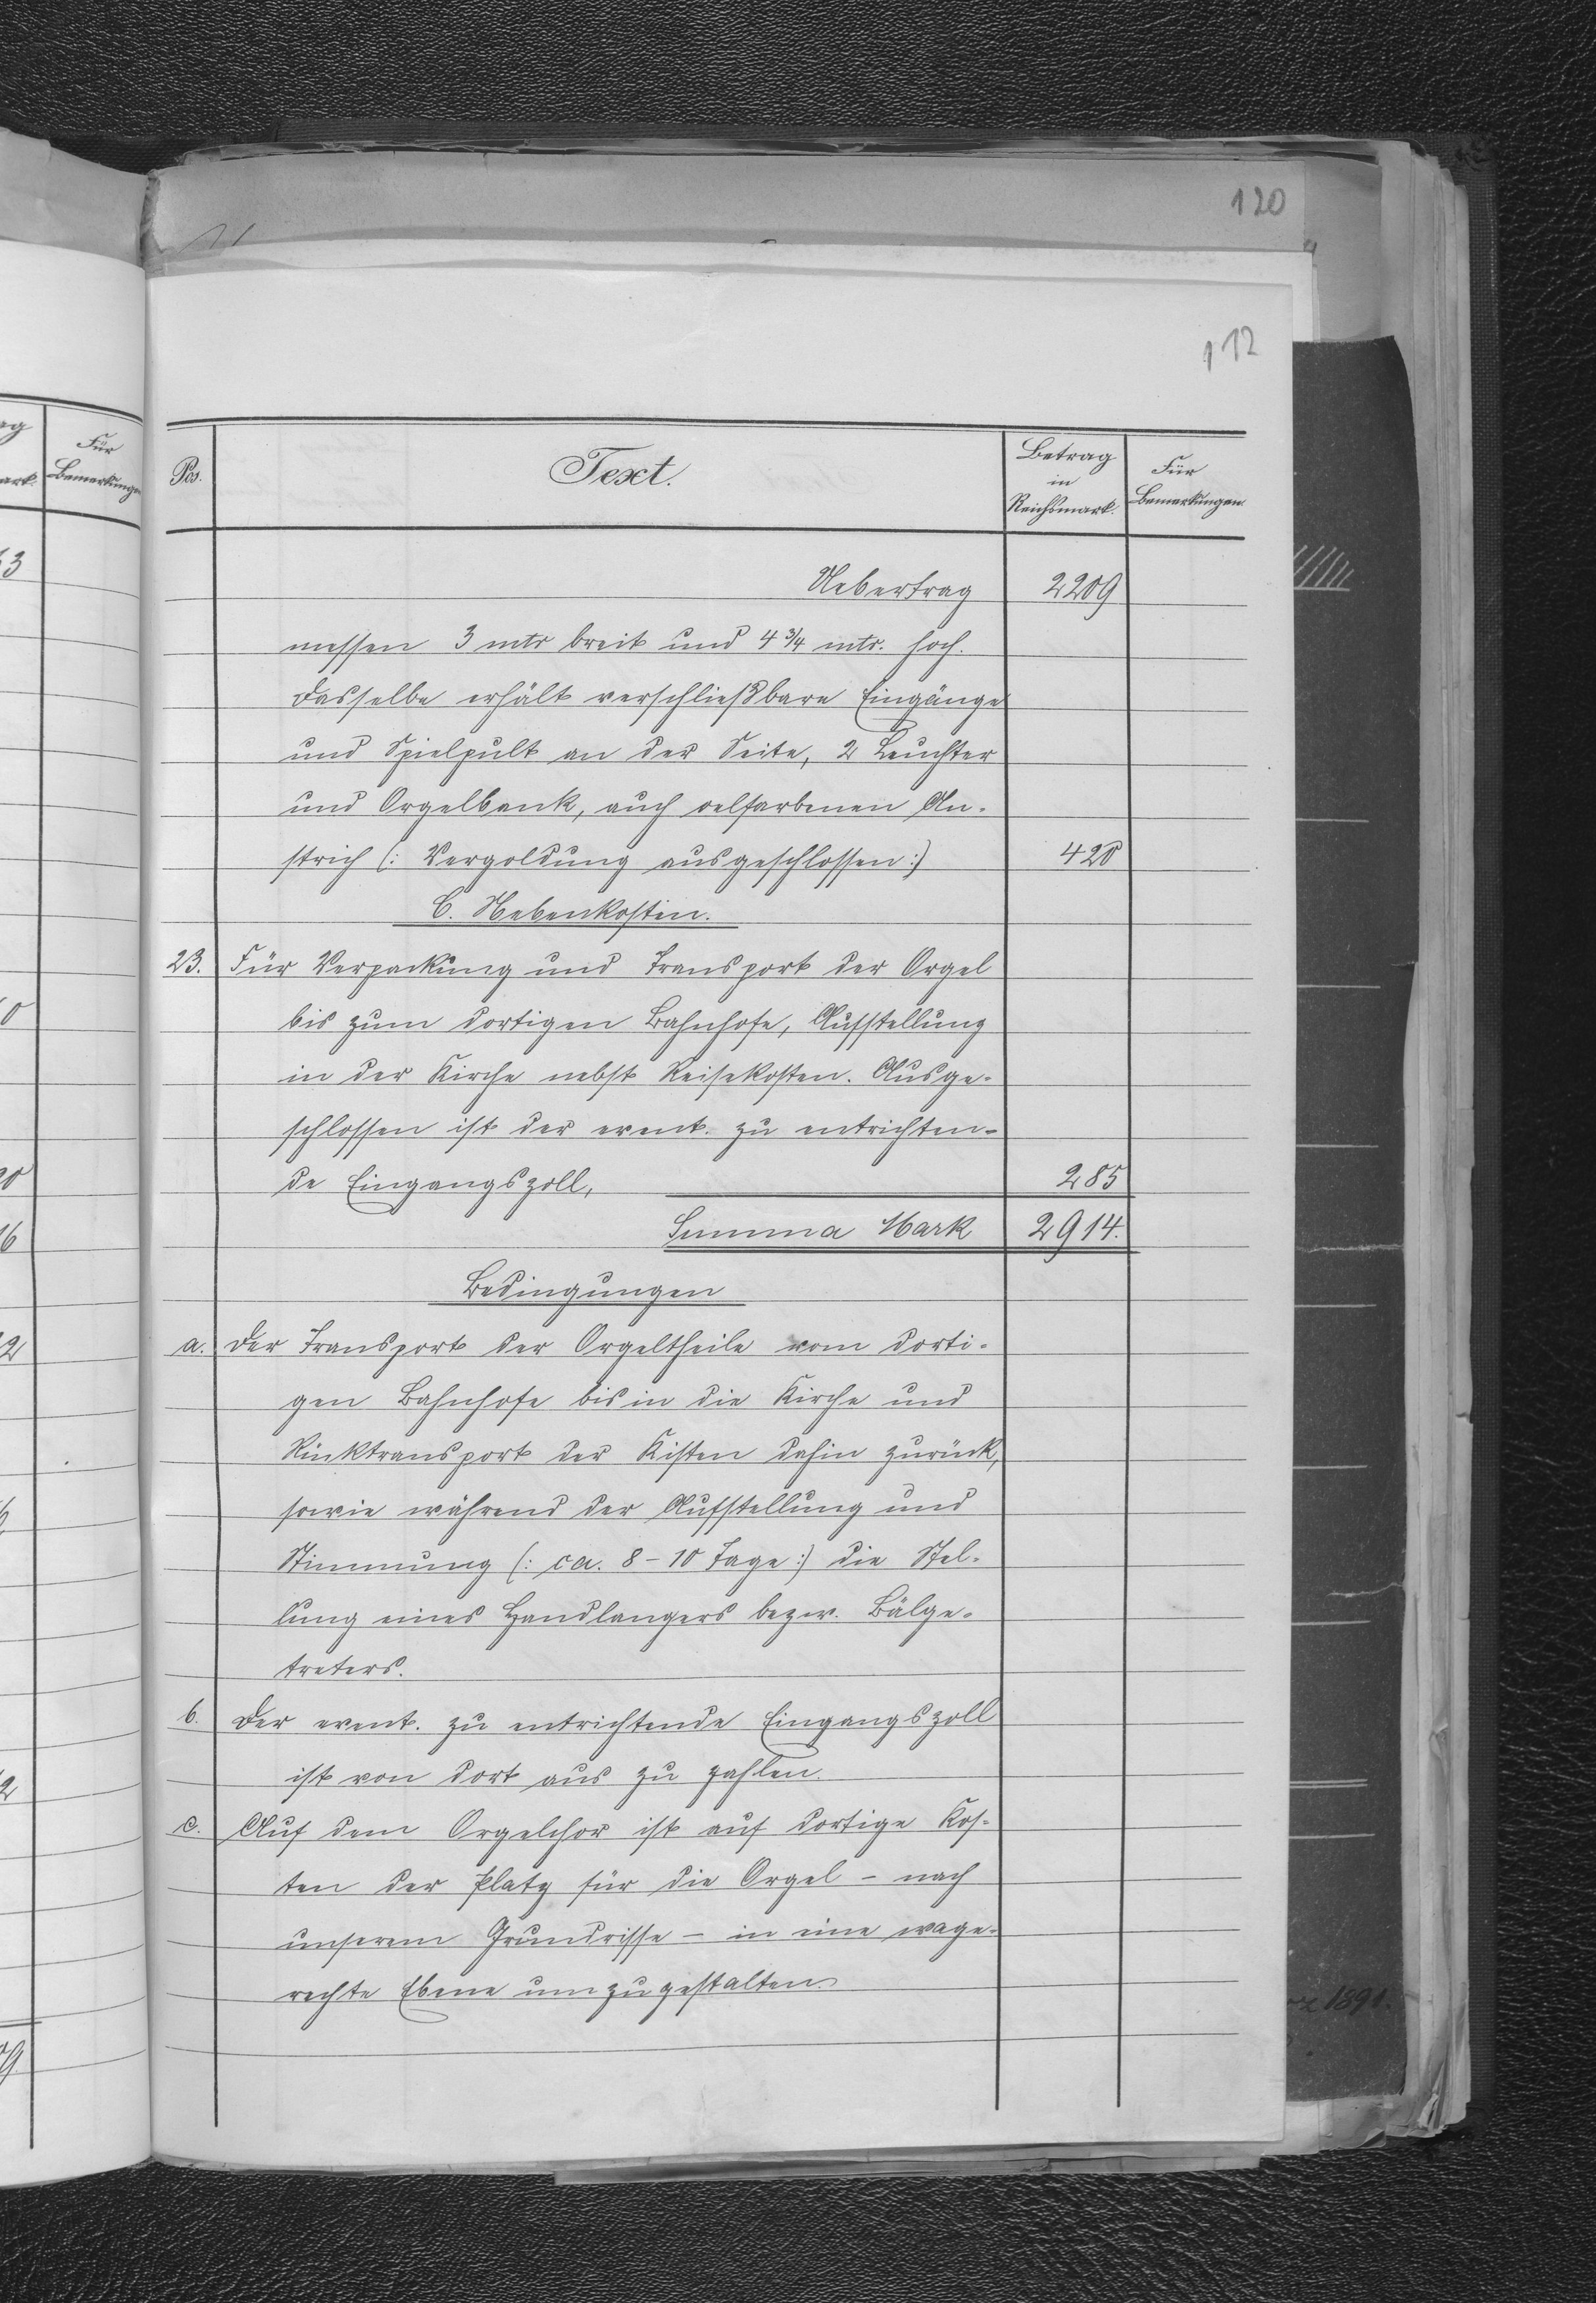 120
112
Pos. Text. Betrag in Reichsmark. Für Bemerkungen
Uebertrag 2209
messen 3 mtr breit und 4 3/4 mtr. hoch.
Dasselbe erhält verschließbare Eingänge
und Spielpult an der Seite, 2 Leuchter
und Orgelbank, auch oelfarbenen An-
strich (: Vergoldung ausgeschlossen :) 420
C. Nebenkosten.
23. Für Verpackung und Transport der Orgel
bis zum dortigen Bahnhofe, Aufstellung
in der Kirche nebst Reisekosten. Ausge-
schlossen ist der event. zu entrichten-
de Eingangszoll, 285
Summa Mark 2914.
Bedingungen
a. Der Transport der Orgeltheile vom dorti-
gen Bahnhofe bis in die Kirche und
Rücktransport der Kisten dahin zurück,
sowie während der Aufstellung und
Stimmung (: ca. 8-10 Tage :) die Stel-
lung eines Handlangers bezw. Bälge-
treters.
b. Der event. zu entrichtende Eingangszoll
ist von dort aus zu zahlen.
c. Auf dem Orgelchor ist auf dortige Kos-
ten der Platz für die Orgel - nach
unserem Grundrisse - in eine wage-
rechte Ebene umzugestalten.
1891.